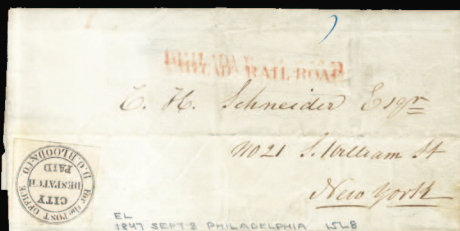 PHILADA RAIL ROAD
C. H. Schneider Esqr
No 21 S. William St
New York
D.O.BLOOD&CO
For the POST OFFICE
CITY
DESPATCH
PAID
EL
1847 SEPT 8 PHILADELPHIA